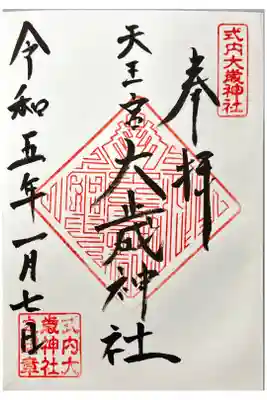 式内大歳神社
奉拝
天王宮大歳神社
令和五年一月七日
式内大
歳神社
之章